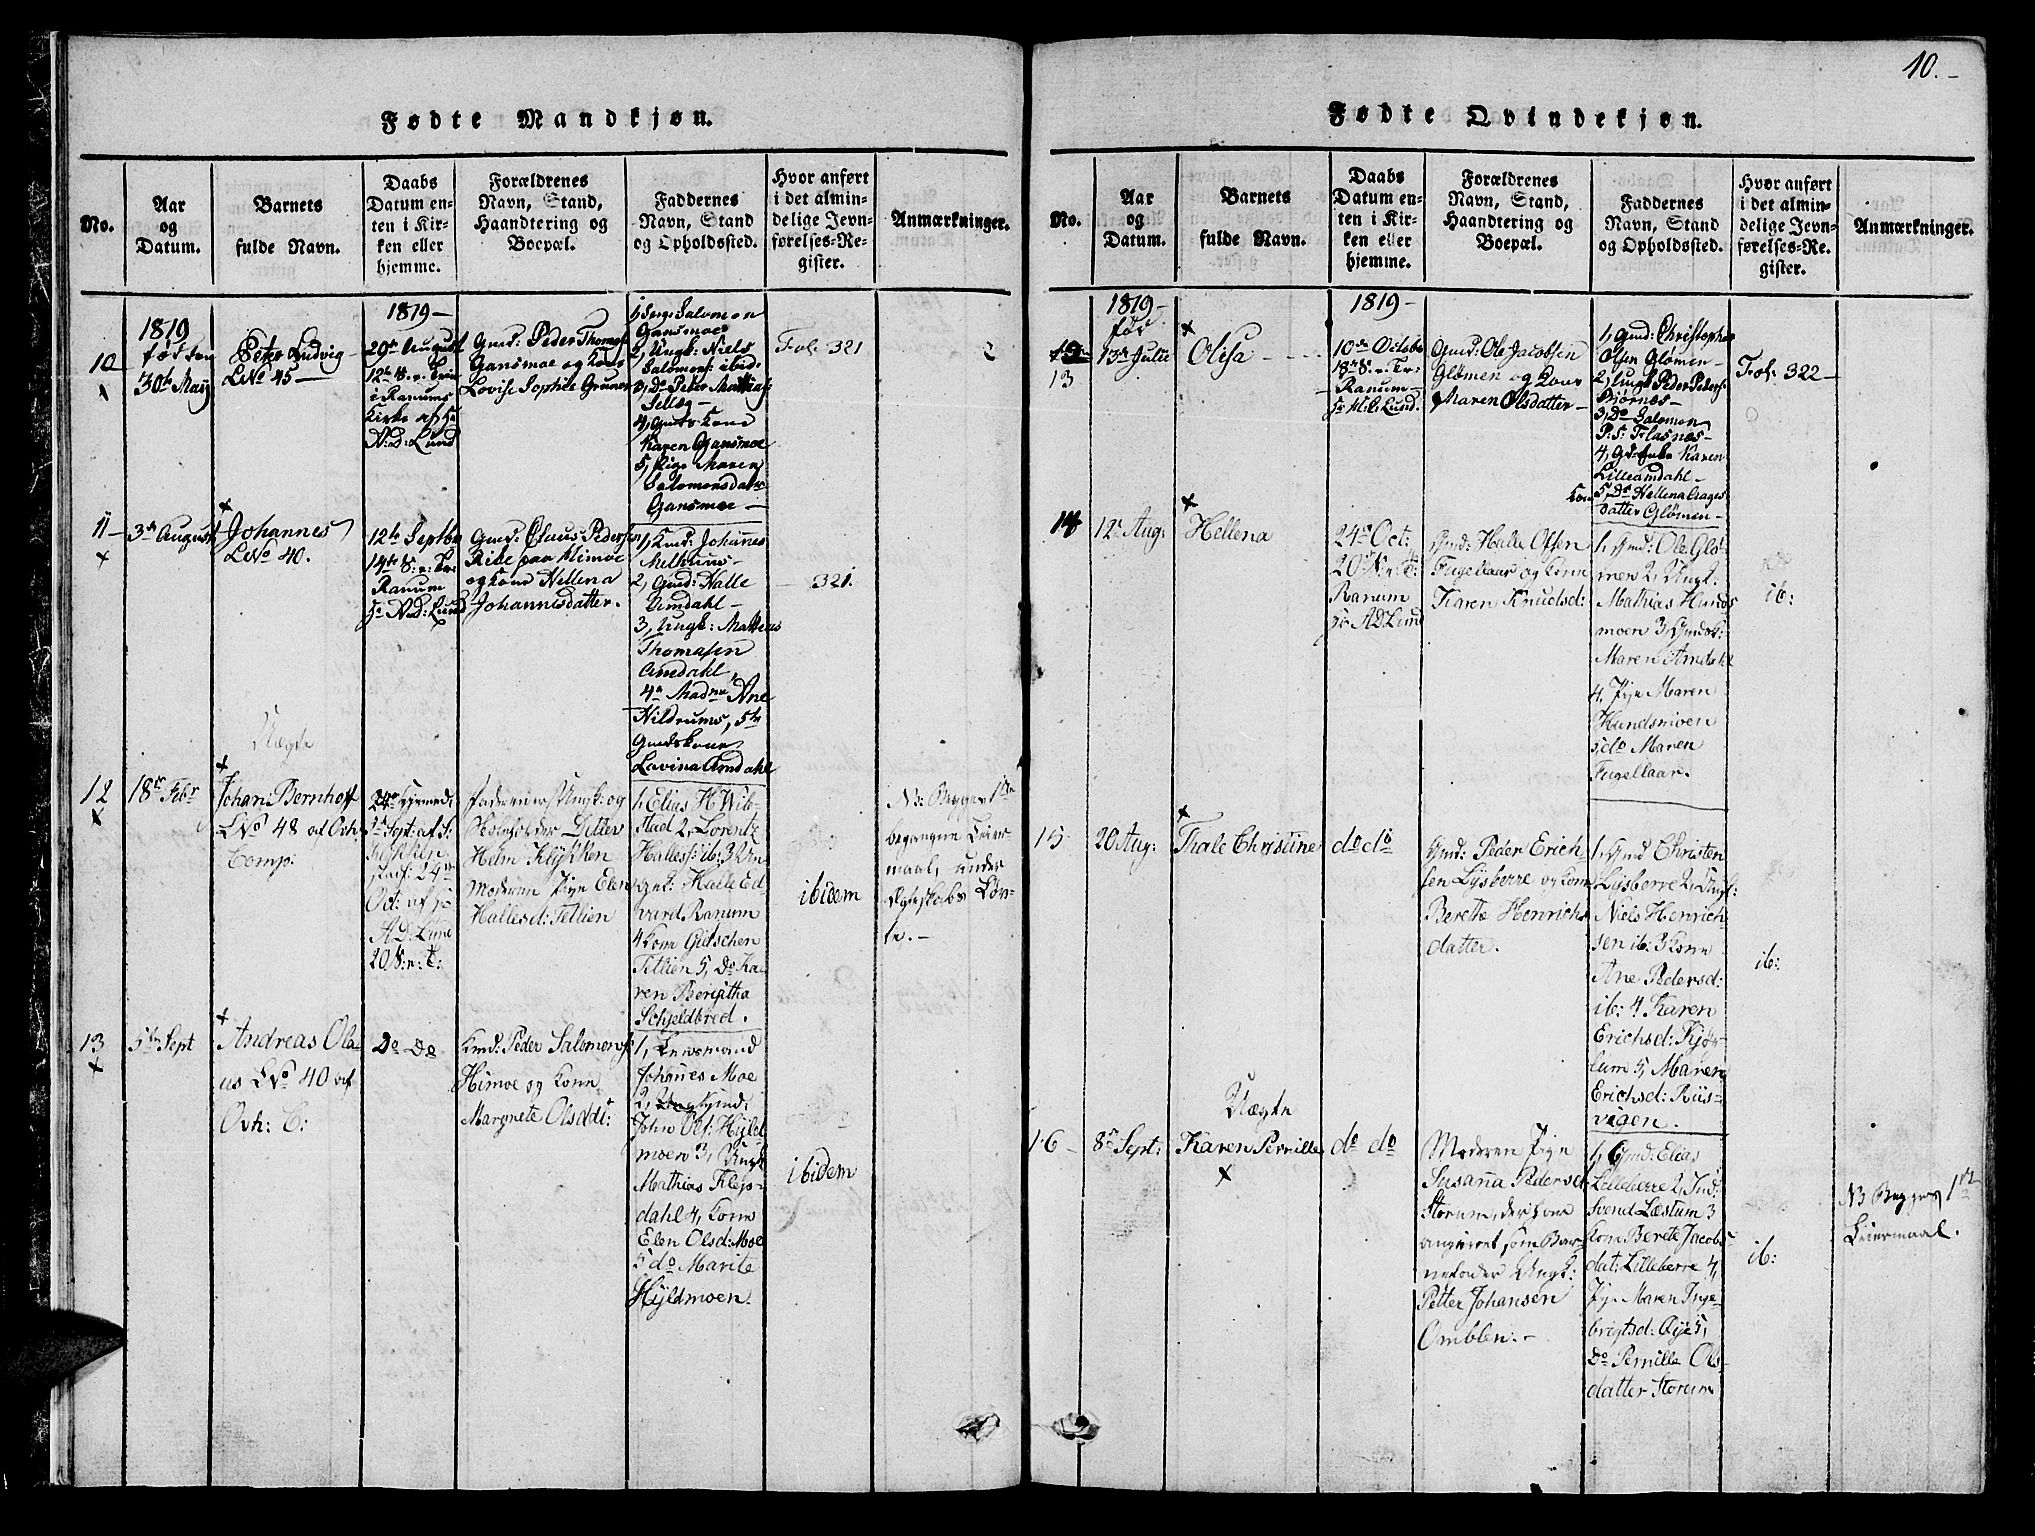 10.-
Fødte Mandkjøn.
No.
Aar
og
Datum.
Barnets
fulde Navn.
Daabs
Datum en-
ten i Kir-
ken eller
hjemme.
Forældrenes
Navn, Stand,
Haandtering og
Boepæl.
Faddernes
Navn, Stand
og Opholdssted.
Hvor anført
i det almin-
delige Jevn-
førelses-Re-
gister.
Anmærkninger.
10
1819
30te Maij
Peter Ludvig
LNo 45
1819-
29de August
12te S. e. Trin
i Ranums
Kirke af
A:D: Lund
Gmd: Peder Thomes
Gansmoe og Kone
Lovise Sophie Gruner
Salomon
Gansmoe
2, Ungk: Niels
Salomons: ibid:
3, Do Peter Mathias
Sellæg-
4, Gmds Kone
Karen Gansmoe
5, Pige Maren
Salomonsdatter
Gansmoe-
Fol. 321
11-
3de August
Johannes
LNo 40.
12te Septbr
14de S: e: Tr:
Ranum
A:D: Lund
Gmd: Claus Pedersen
Himoe
og Kone Hellena
Johannisdatter.
1, Gmd: Johannes
Melhuus-
2, Gmd: Halle
Amdahl-
3, Ungk: Matheus
Thomesen
Amdahl
4de Madme Ane
Nildrums, 5te
Gmdskone
Lovina Amdahl
- 321.
12
18de Febr
Uægte
Johan Bernhoff
LNo 48 af Ovh:
Comp:
24de
Oct: af
AD: Lund
20 S: e: T:
Faderen er Ungk: og
Ditlev
Helm Klykken
Moderen Pige Elen
Hallesd: Tetlien
1, Elias H. Wib-
stad 2, Lorentz
Halless: ib: 3 Un-
gk: Halle Ed-
vard Ranum
4 Kone Gietschen
Tetlien 5, Do Ka-
ren Berigtha
Schjeldbred.
ibidem
NB: Begges 1te
begangne Leier-
maal, under
Egteskabs Løv-
te.-
13
5te Sept
Andreas Ola-
us LNo 40 af
Ovh: C:
Do Do
Gmd: Peder Salomons:
Himoe og Kone
Margrete Olsdd:
1, Lensmand
Johannes Moe
2, Gmd:
John Ols: Hyld-
moen 3, Ungk
Mathias Flejs-
dahl 4, Kone
Elen Olsd: Moe
5 do Marite
Hyldmoen.
ibidem
Fødte Qvindekjøn.
No.
Aar
og
Datum.
Barnets
fulde Navn.
Daabs
Datum en-
ten i Kir-
ken eller
hjemme.
Forældrenes
Navn, Stand,
Haandtering og
Boepæl.
Faddernes
Navn, Stand
og Opholdssted.
Hvor anført
i det almin-
delige Jevn-
førelses-Re-
gister.
Anmærkninger.
13
1819-
13de Julii
Olisa
1819-
10de Octobr
18de S: e: Tr:
Ranum-
Lund.
Gmd: Ole Jacobsen
Glømen og Kone
Maren Olsdatter-
1, Gmd: Christopher
Olsen Glømen-
2, Ungk Peder Peders:
Bjørnes-
3, Do Salomon
P:S: Flasnes-
4, Karen
Lilleamdahl-
5, Do Hellena
datter Glømen-
Fol: 322-
14
12te Aug:
Hellena
24de Oct:
20 S: e: T:
Ranum
AD Lund
Gmd: Halle Olsen
Fugellaar og Kone
Karen Knudsd:
1, Gmd: Ole Glø-
men 2, Ungk:
Mathias Hunds-
moen 3, Gmdsk:
Maren Amdahl
4, Pige Maren
Hundsmoen
5, do Maren
Fugellaar.
ib:
15
20 Aug:
Thale Christine
do do
Gmd: Peder Erich-
sen Lysberre og Kone
Berette Henrichs-
datter.
1, Gmd Christen
Lysberre 2, Ungk:
Niels Henrich-
sen ib: 3 Kone
Ane Pedersd:
ib: 4 Karen
Erichsd: Kjør-
lum 5, Maren
Erichsd: Riis-
vigen.
ib:
16-
8de Sept:
Uægte
Karen Pernille
do do
Moderen Pige
Susana Pedersd:
Storum, der som
angivet som Bar-
nefader Ungk:
Petter Johansen
Omblen.-
1, Gmd: Elias
Lilleberre 2, Ind:
Svend Læstum 3
Kone Berete Jacobs-
dat: Lilleberre 4,
Pige Maren Inge-
brigtsd: Øye 5,
Do Pernille Ols-
datter Storum
ib:
NB Begges 1te
Leiermaal.